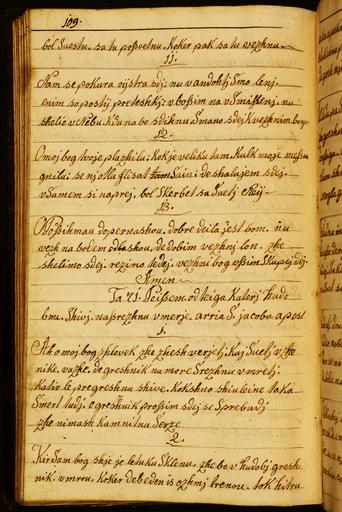 109.
bol Suestu. sa tu posvetnu. Koker pak sa tu vezhnu
11.
Nam se pokura oystra sdj: nu vandohtj Smo lenj
enim so postj preteshkj: v bossim na vsmilenj. nu
shelio v Nebu. kadu na bo sdeknu Smano sdej k vezhnim bogu
12.
O moj bog tvoje plazhila: kok je veliku tam Kulk moje
gnilu: se nj Sain: de shalujem sdej.
vsamem si naprej. bol Skerbet sa Suelj
13.
Nossihmau do pernashou. dobre deila jest bom. nu
vezh na bodem odlashou. de dobim vezhnj lon. zhe
shelimo sdej. rezimo tedej. vezhnj bog vssim Skupej dej.
Amen
Ta 71. Peissem. od teiga Katerj hudo
bnu. Shivj. nasrezhnu vmerje. arria S. jacoba apost
1.
Ah o moj bog zhlovek zhe zhesh verjetj: Kaj Suetj
nike. vuzhe. de greshnik na more Srezhnu vmretj:
katir le pregreshnu shive. kokshno shiuleine taka
Smert tudj. o greshnik prossim sdej se Spreberdj
zhe nimash kamnitnu Serze
2.
Kir Sam bog shje je letuku Sklenu. zhe bo v hudobj gresh
nik. vmreu. koker debeden is ozhmj trenou. tok hitru